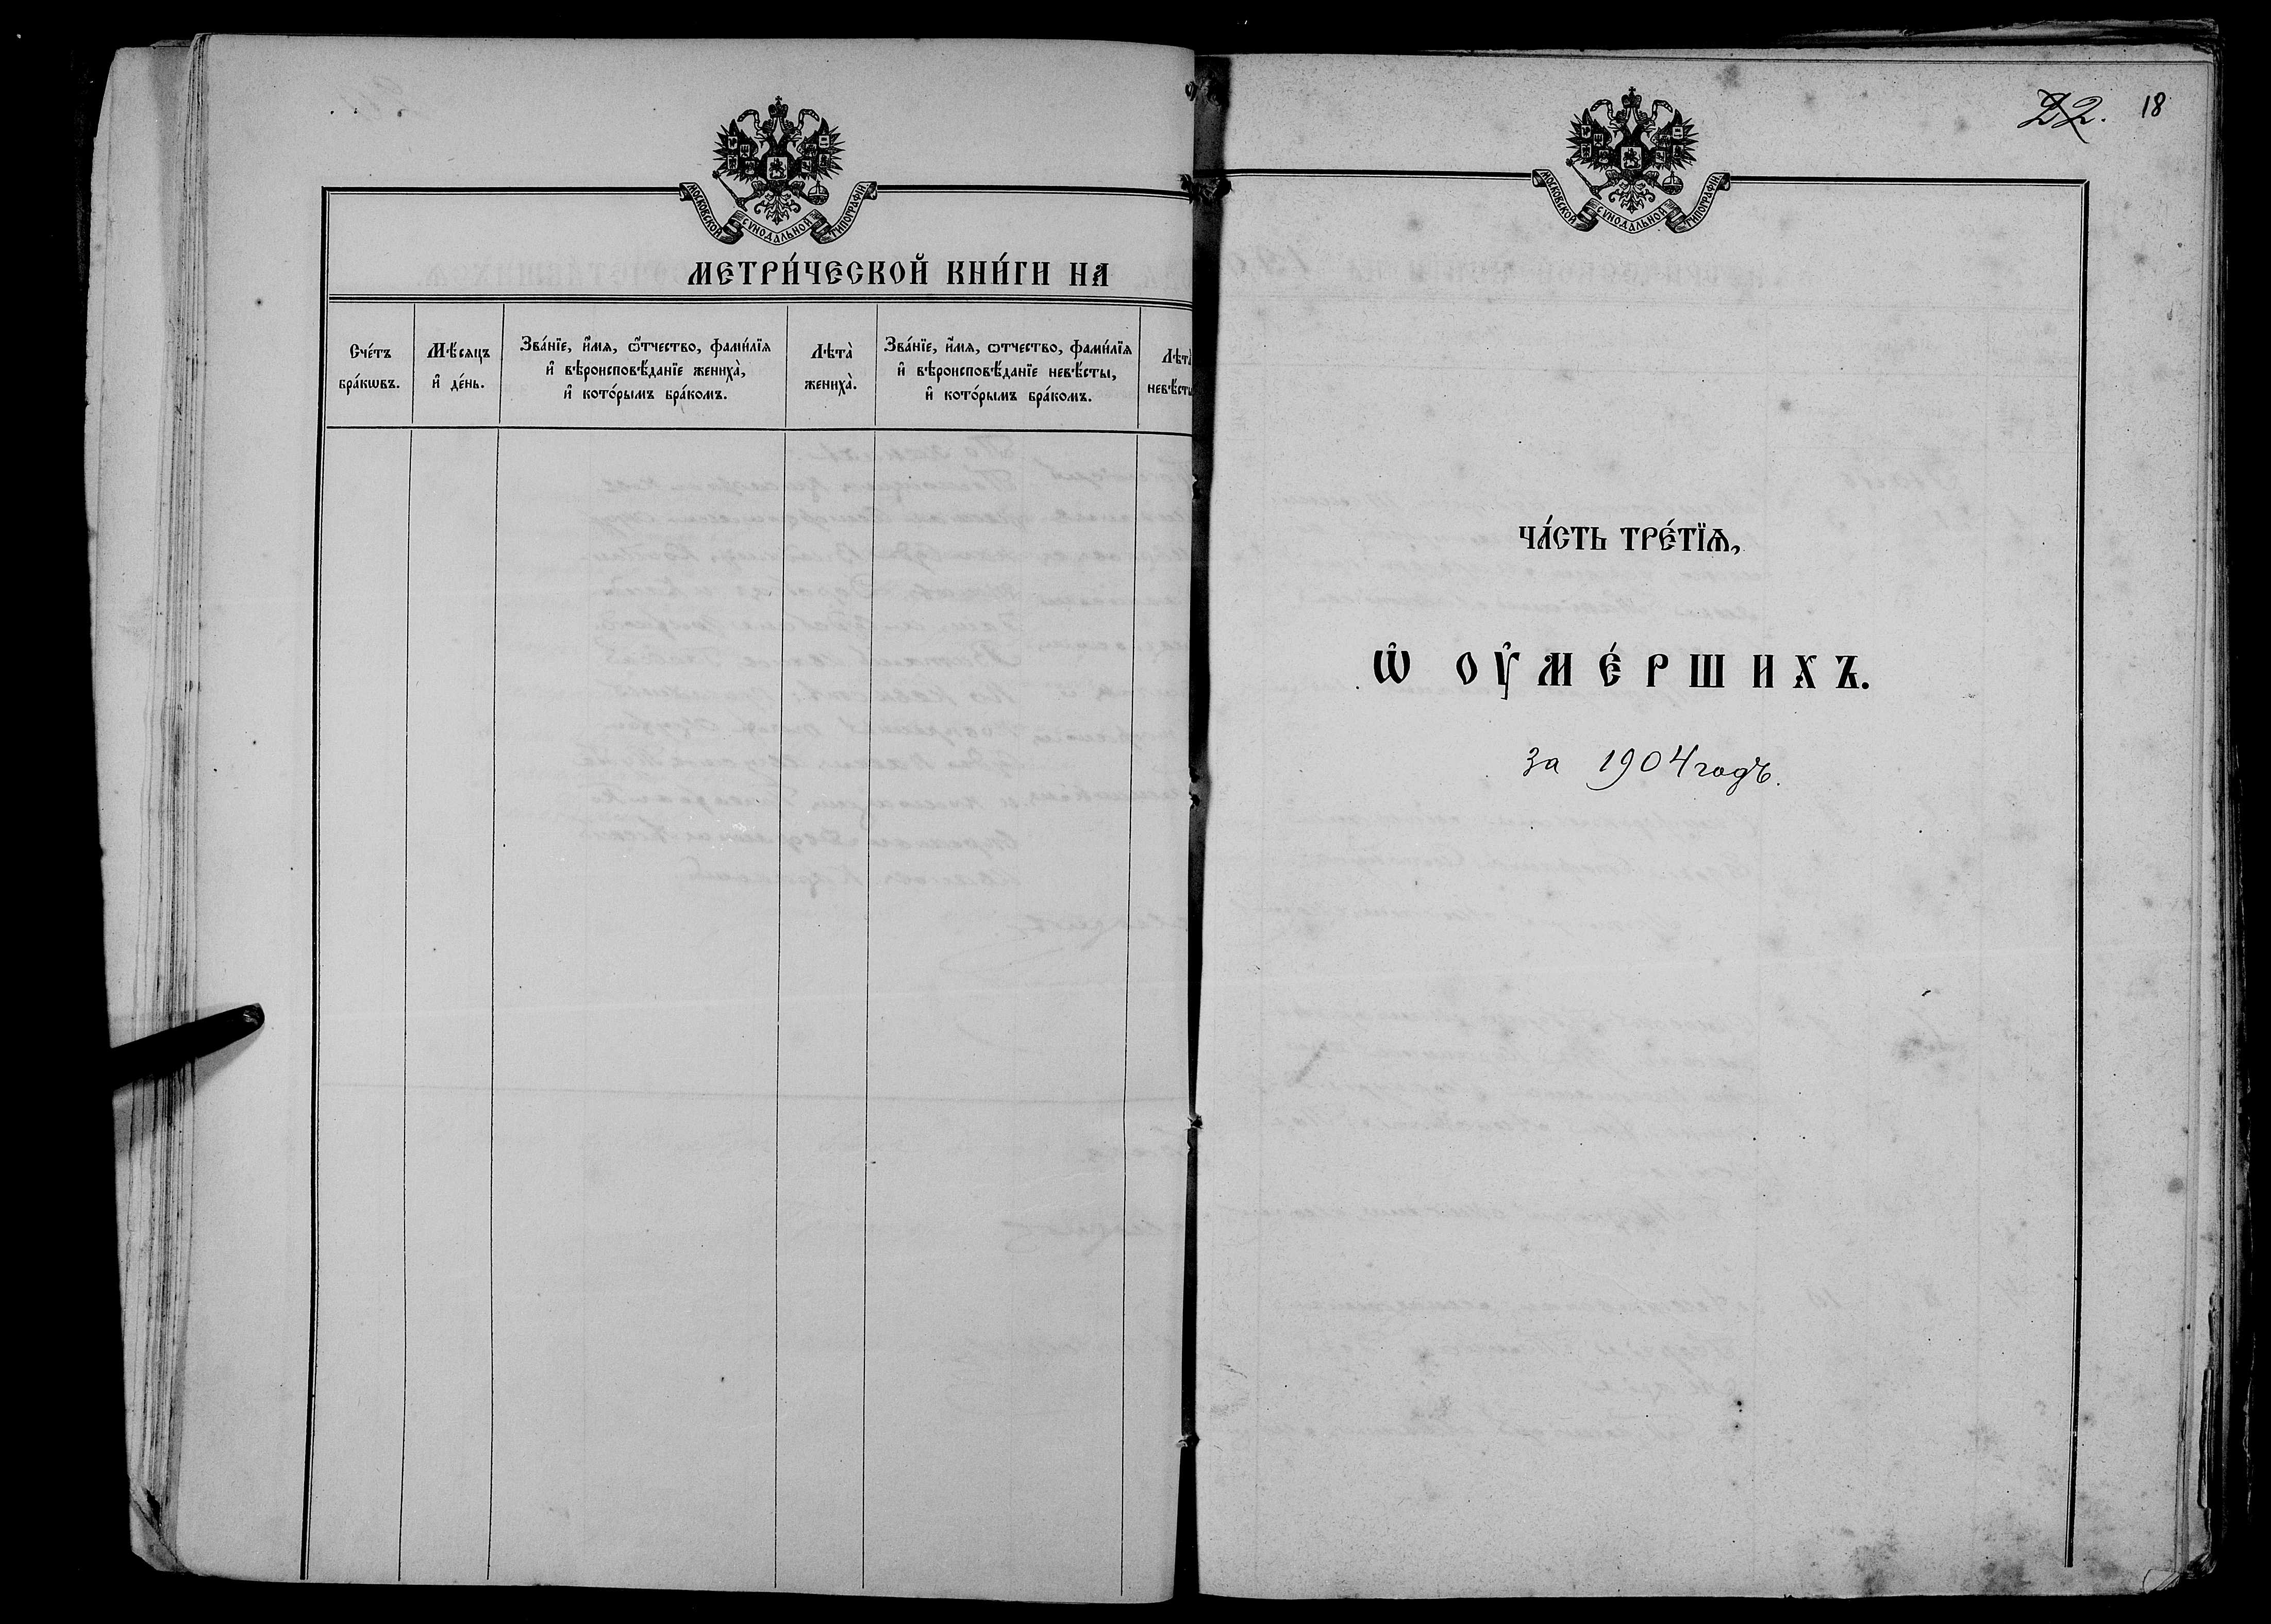 МОСКОВСКОЙ СѴНОДАЛЬНОЙ ТИПОГРАФІИ
МЕТРИ́ЧЕСКОЙ КНИ́ГИ НА
Сче́тъ бра́кѡвъ.
Мѣ́сяцъ и҆ де́нь.
Зва́нїе, и҆́мѧ, ѻ҆́тчество, фами́лїѧ
и҆ вѣроисповѣ́данїе жениха̀,
и҆ кото́рымъ бра́комъ.
Лѣта̀ жениха̀.
Зва́нїе, и҆́мѧ, ѻ҆тчество, фами́лїѧ
и҆ вѣроисповѣ́данїе невѣ́сты,
и҆ кото́рымъ бра́комъ.
Лѣта̀
невѣ́сты
22. 18
МОСКОВСКОЙ СѴНОДАЛЬНОЙ ТИПОГРАФІИ
ЧА́СТЬ ТРЕ́ТЇѦ,
Ѡ҆ ОУ҆МЕ́РШИХЪ.
за 1904 годъ.